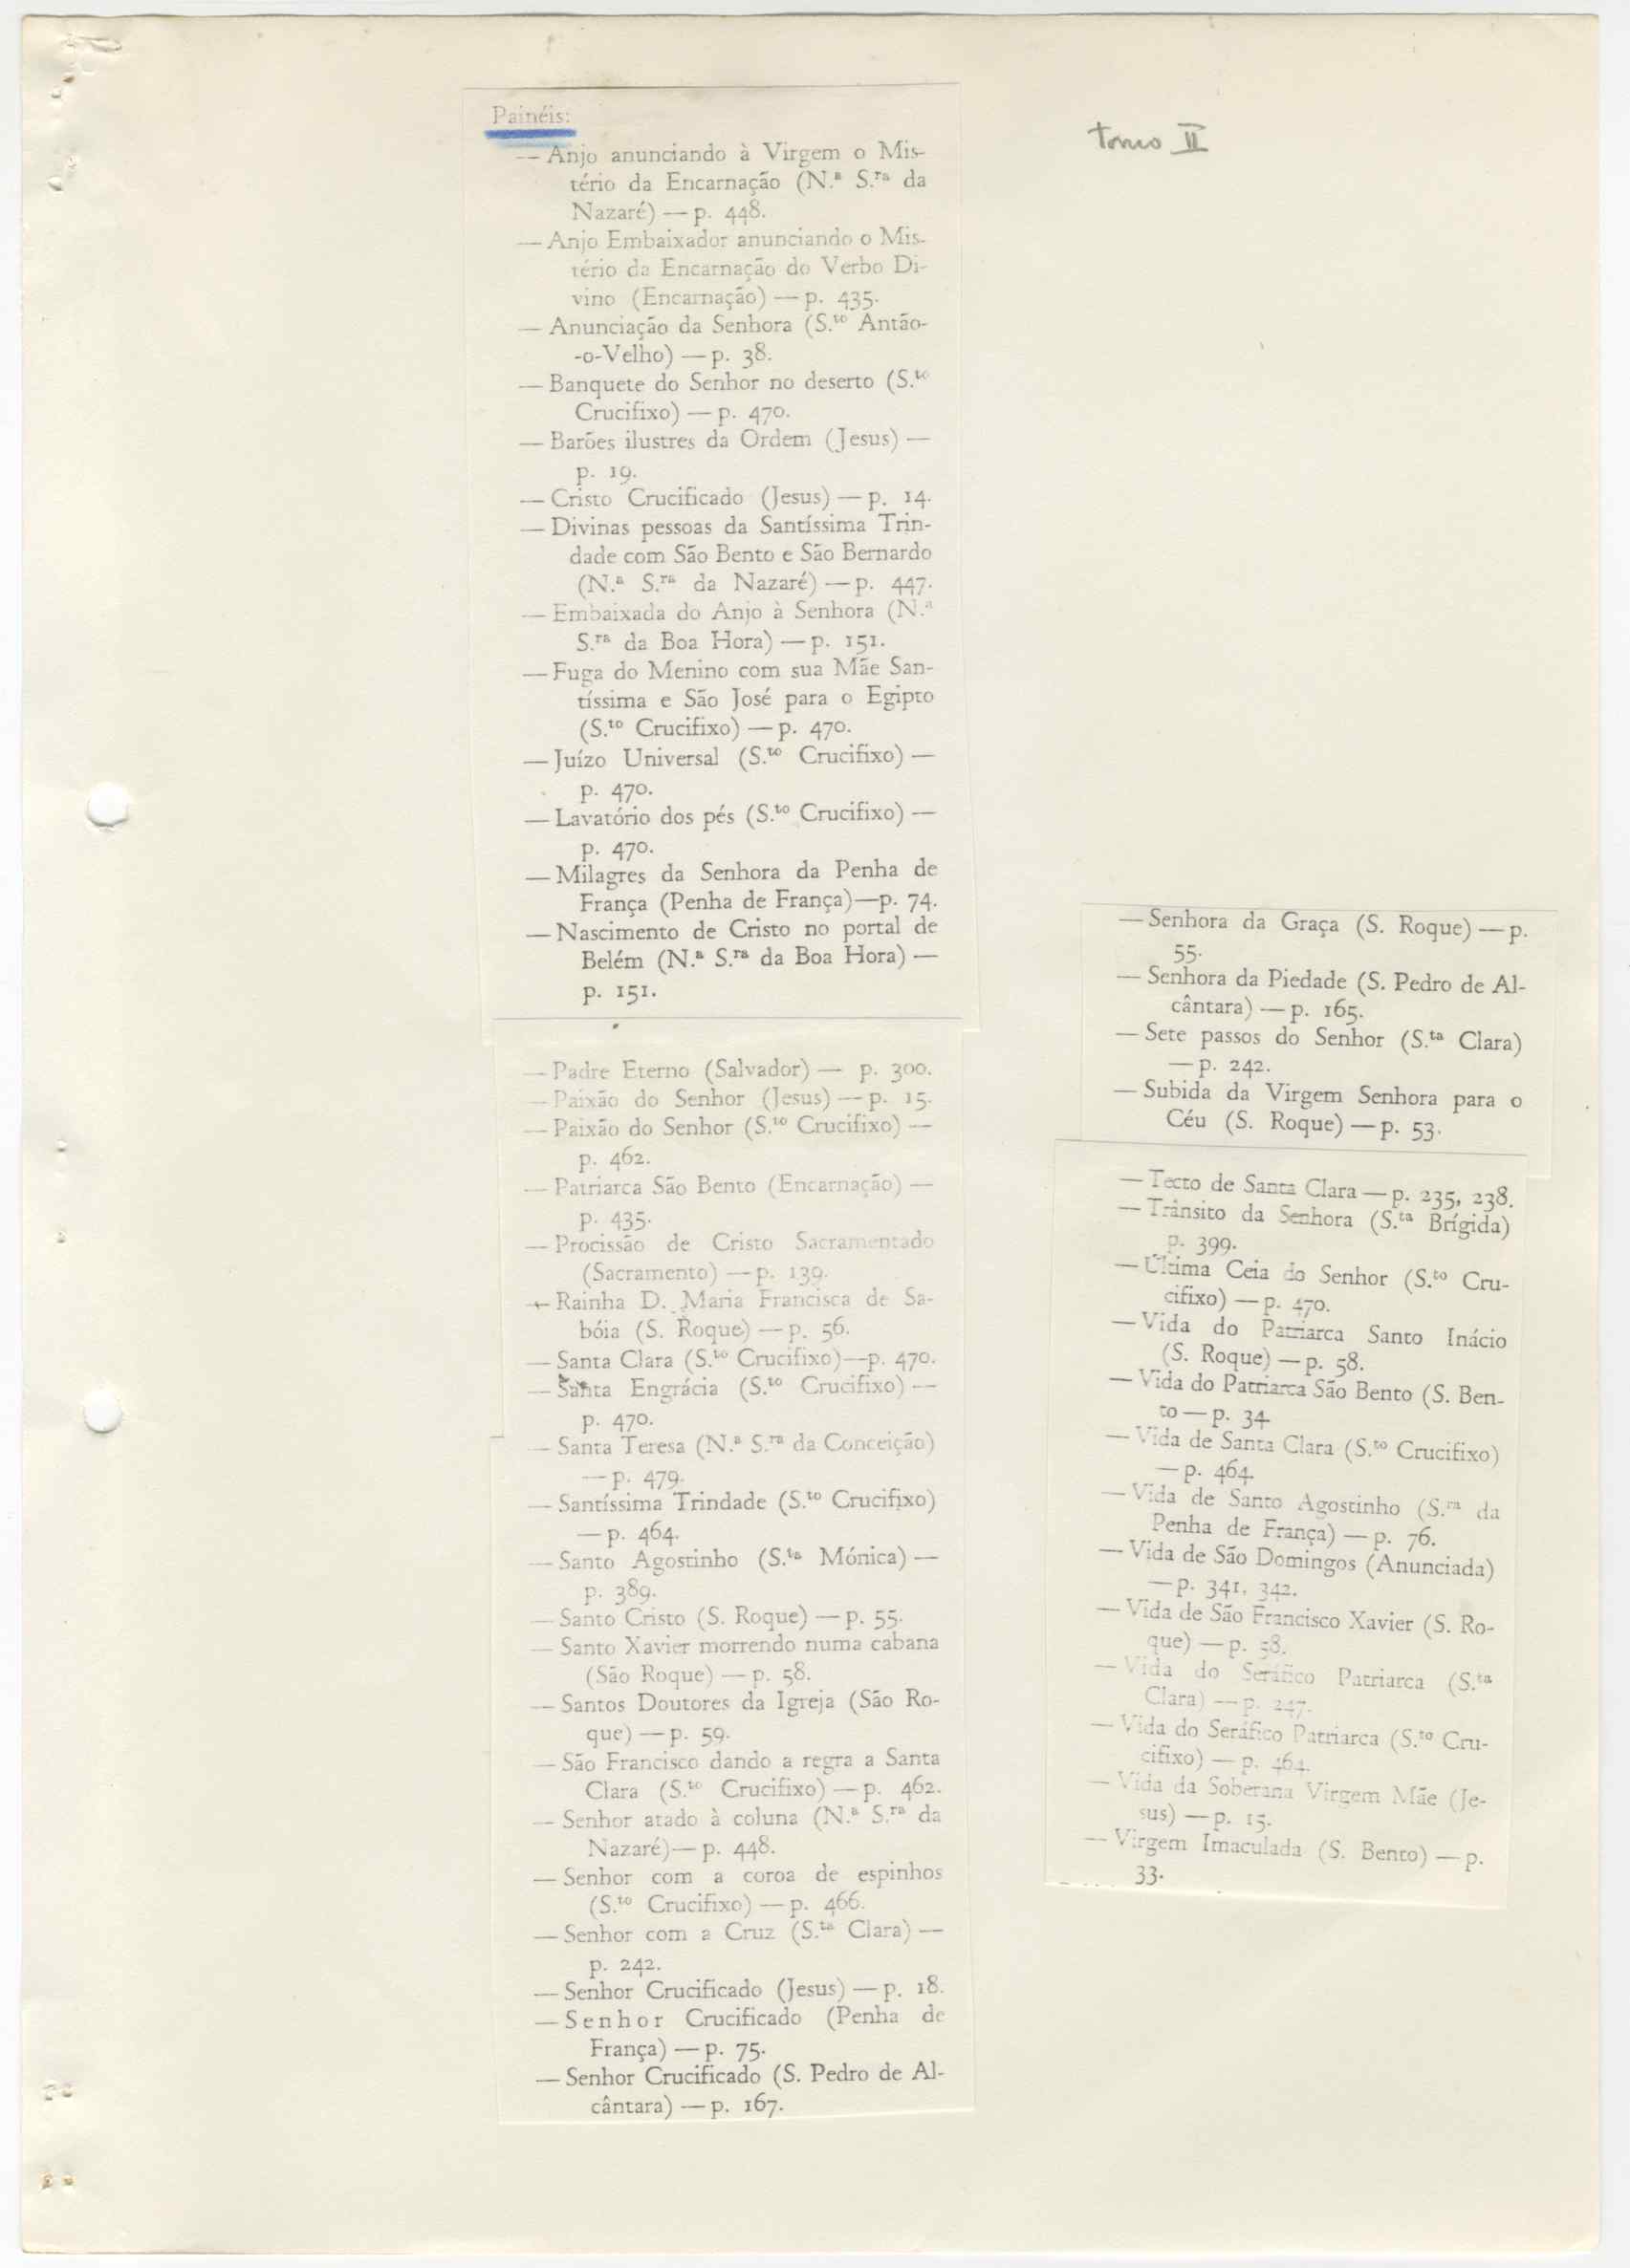 Painéis:
— Anjo anunciando à Virgem o Mis-
tério da Encarnação (N.ª S.ra da
Nazaré) — p. 448.
— Anjo Embaixador anunciando o Mis-
tério da Encarnação do Verbo Di-
vino (Encarnação) — p. 435.
— Anunciação da Senhora (S.to Antão-
-o-Velho) — p. 38.
— Banquete do Senhor no deserto (S.to
Crucifixo) — p. 470.
— Barões ilustres da Ordem (Jesus) —
p. 19.
— Cristo Crucificado (Jesus) — p. 14.
— Divinas pessoas da Santíssima Trin-
dade com São Bento e São Bernardo
(N.ª S.ra da Nazaré) — p. 447.
— Embaixada do Anjo à Senhora (N.ª
S.ra da Boa Hora) — p. 151.
— Fuga do Menino com sua Mãe San-
tíssima e São José para o Egipto
(S.to Crucifixo) — p. 470.
— Juízo Universal (S.to Crucifixo) —
p. 470.
— Lavatório dos pés (S.to Crucifixo) —
p. 470.
— Milagres da Senhora da Penha de
França (Penha de França)—p. 74.
— Nascimento de Cristo no portal de
Belém (N.ª S.ra da Boa Hora) —
p. 151.
— Padre Eterno (Salvador) — p. 300.
— Paixão do Senhor (Jesus) — p. 15.
— Paixão do Senhor (S.to Crucifixo) —
p. 462.
— Patriarca São Bento (Encarnação) —
p. 435.
— Procissão de Cristo Sacramentado
(Sacramento) — p. 139.
— Rainha D. Maria Francisca de Sa-
bóia (S. Roque) — p. 56.
— Santa Clara (S.to Crucifixo)—p. 470.
— Santa Engrácia (S.to Crucifixo) —
p. 470.
— Santa Teresa (N.ª S.ra da Conceição)
— p. 479.
— Santíssima Trindade (S.to Crucifixo)
— p. 464.
— Santo Agostinho (S.ta Mónica) —
p. 389.
— Santo Cristo (S. Roque) — p. 55.
— Santo Xavier morrendo numa cabana
(São Roque) — p. 58.
— Santos Doutores da Igreja (São Ro-
que) — p. 59.
— São Francisco dando a regra a Santa
Clara (S.to Crucifixo) — p. 462.
— Senhor atado à coluna (N.ª S.ra da
Nazaré)— p. 448.
— Senhor com a coroa de espinhos
(S.to Crucifixo) — p. 466.
— Senhor com a Cruz (S.ta Clara) —
p. 242.
— Senhor Crucificado (Jesus) — p. 18.
— Senhor Crucificado (Penha de
França) — p. 75.
— Senhor Crucificado (S. Pedro de Al-
cântara) — p. 167.
tomo II
— Senhora da Graça (S. Roque) — p.
55.
— Senhora da Piedade (S. Pedro de Al-
cântara) — p. 165.
— Sete passos do Senhor (S.ta Clara)
— p. 242.
— Subida da Virgem Senhora para o
Céu (S. Roque) — p. 53.
— Tecto de Santa Clara — p. 235, 238.
— Trânsito da Senhora (S.ta Brígida)
p. 399.
— Última Ceia do Senhor (S.to Cru-
cifixo) — p. 470.
— Vida do Patriarca Santo Inácio
(S. Roque) — p. 58.
— Vida do Patriarca São Bento (S. Ben-
to — p. 34
— Vida de Santa Clara (S.to Crucifixo)
— p. 464
— Vida de Santo Agostinho (S.ra da
Penha de França) — p. 76.
— Vida de São Domingos (Anunciada)
— p. 341, 342.
— Vida de São Francisco Xavier (S. Ro-
que) — p. 58.
— Vida do Seráfico Patriarca (S.ta
Clara) — p. 247.
— Vida do Seráfico Patriarca (S.to Cru-
cifixo) — p. 464.
— Vida da Soberana Virgem Mãe (Je-
sus) — p. 15.
— Virgem Imaculada (S. Bento) — p.
33.